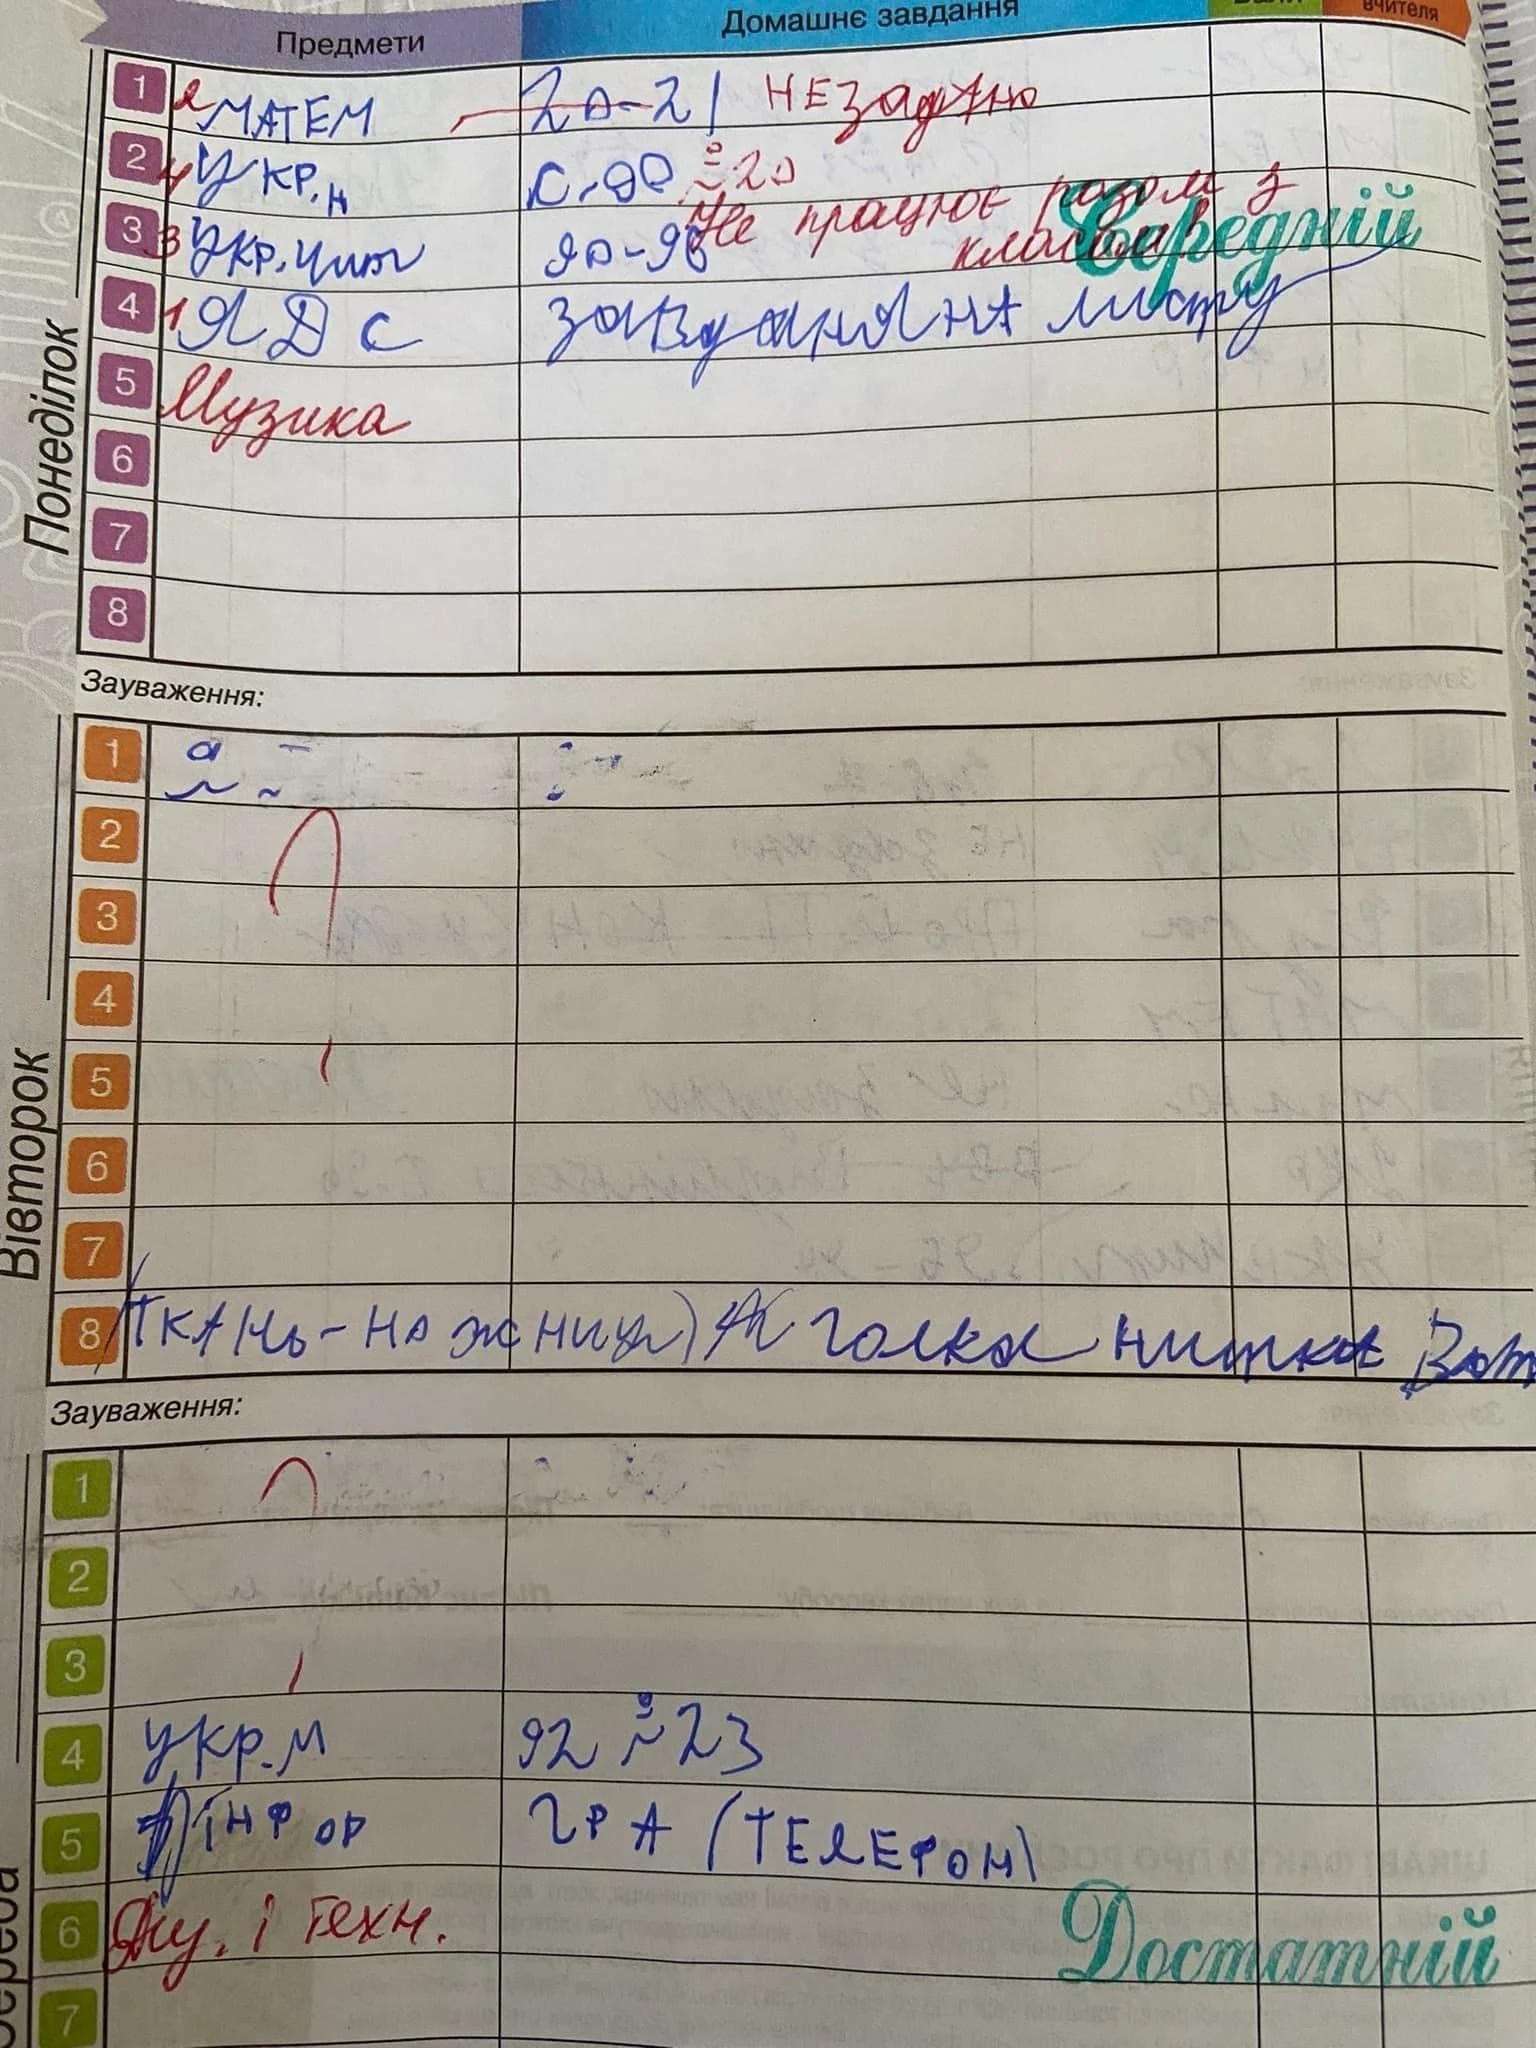 Предмети Домашнє завдання вчителя
Понеділок
1 2 МАТЕМ 20-21 НЕ задано
2 4 УКР.Н с.90 20
Не працює разом з
класом
Середній
3 3 Укр.чит 90-96
4 1 ЯДС завдання на листу
5 Музика
6
7
8
Зауваження:
Вівторок
1
2
3
4
5
6
7
8 (ткань-на жници) голка нитка Ват
Зауваження:
Середа
1
2
3
4 укр.м 92 23
5 Інфор ГРА (ТЕЛЕФОН)
6 і техн.
Достатній
7